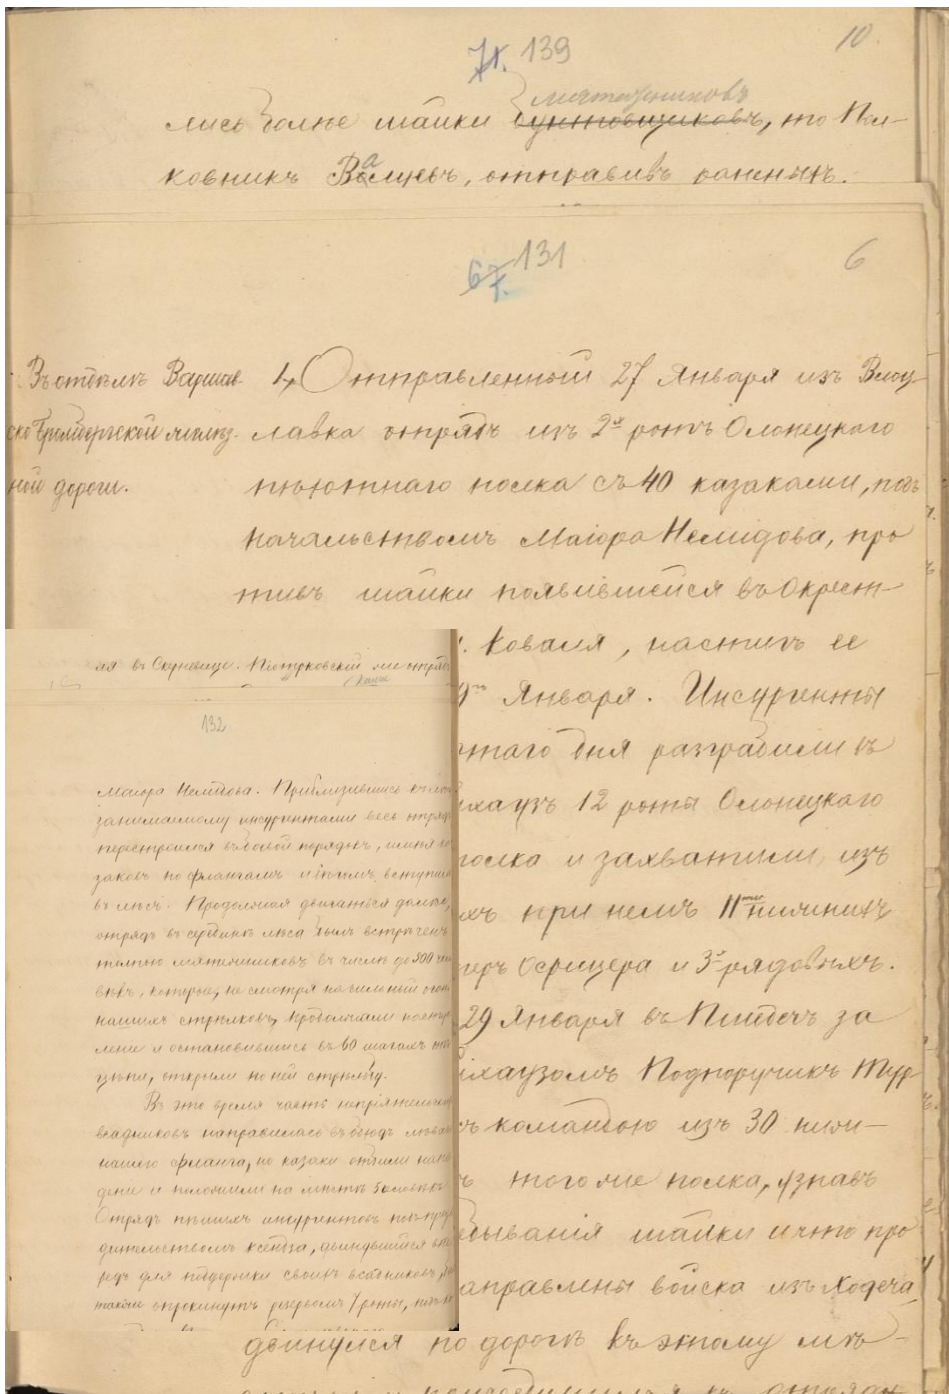 71. 139
10.
мятежниковъ
лись болѣе шайки бунтовщиковъ, то Пол-
ковникъ Валуевъ, отправивъ раненыхъ.
67. 131
6
Въ отдѣлѣ Варшав-
ско Бромбергской желѣз-
ной дороги.
4, Отправленный 27 Января изъ Влоц-
лавка отрядъ изъ 2х ротъ Олонецкаго
пѣхотнаго полка съ 40 казаками, подъ
начальствомъ Маіора Нелидова, про
тивъ шайки появившейся въ окрест-
Коваля, настигъ ее
Января. Инсургенты
таго дня разграбили въ
хаузъ 12 роты Олонецкаго
полка и захватили изъ
хъ при немъ 11ти нижнихъ
теръ Офицера и 3х рядовыхъ.
29 Января въ за
хаузомъ Подпоручикъ Тур
ъ командою изъ 30 ниж-
ъ того же полка, узнавъ
быванія шайки и что про
аправлены войска изъ Ходеча,
двинулся по дорогѣ къ этому мѣ-
ая въ Скерневице. Піотрковскій же отрядъ
132
маіора Нелидова. Приблизившись къ
занимаемому инсургентами весь отряд
перестроился въ боевой порядокъ, имѣя ка
заковъ по флангамъ и вступилъ
въ лѣсъ. Продолжая двигаться далѣе,
отрядъ въ серединѣ лѣса былъ встрѣченъ
толпою мятежниковъ въ числѣ до 500 чел
вѣкъ, которые, не смотря на сильный огонь
нашихъ стрѣлковъ, продолжали наступ
леніе и остановившись въ 60 шагахъ отъ
цѣпи, открыли по ней стрѣльбу.
Въ это время часть непріятельск
всадниковъ направилась въ обходъ лѣва
нашего фланга, но казаки отбили напа
деніе и положили на мѣстѣ 5 человѣкъ.
Отрядъ пѣшихъ инсургентовъ подъ пред
дительствомъ ксендза, двинувшійся впе
редъ для поддержки своихъ всадниковъ,
также опрокинутъ резервомъ 7 роты,